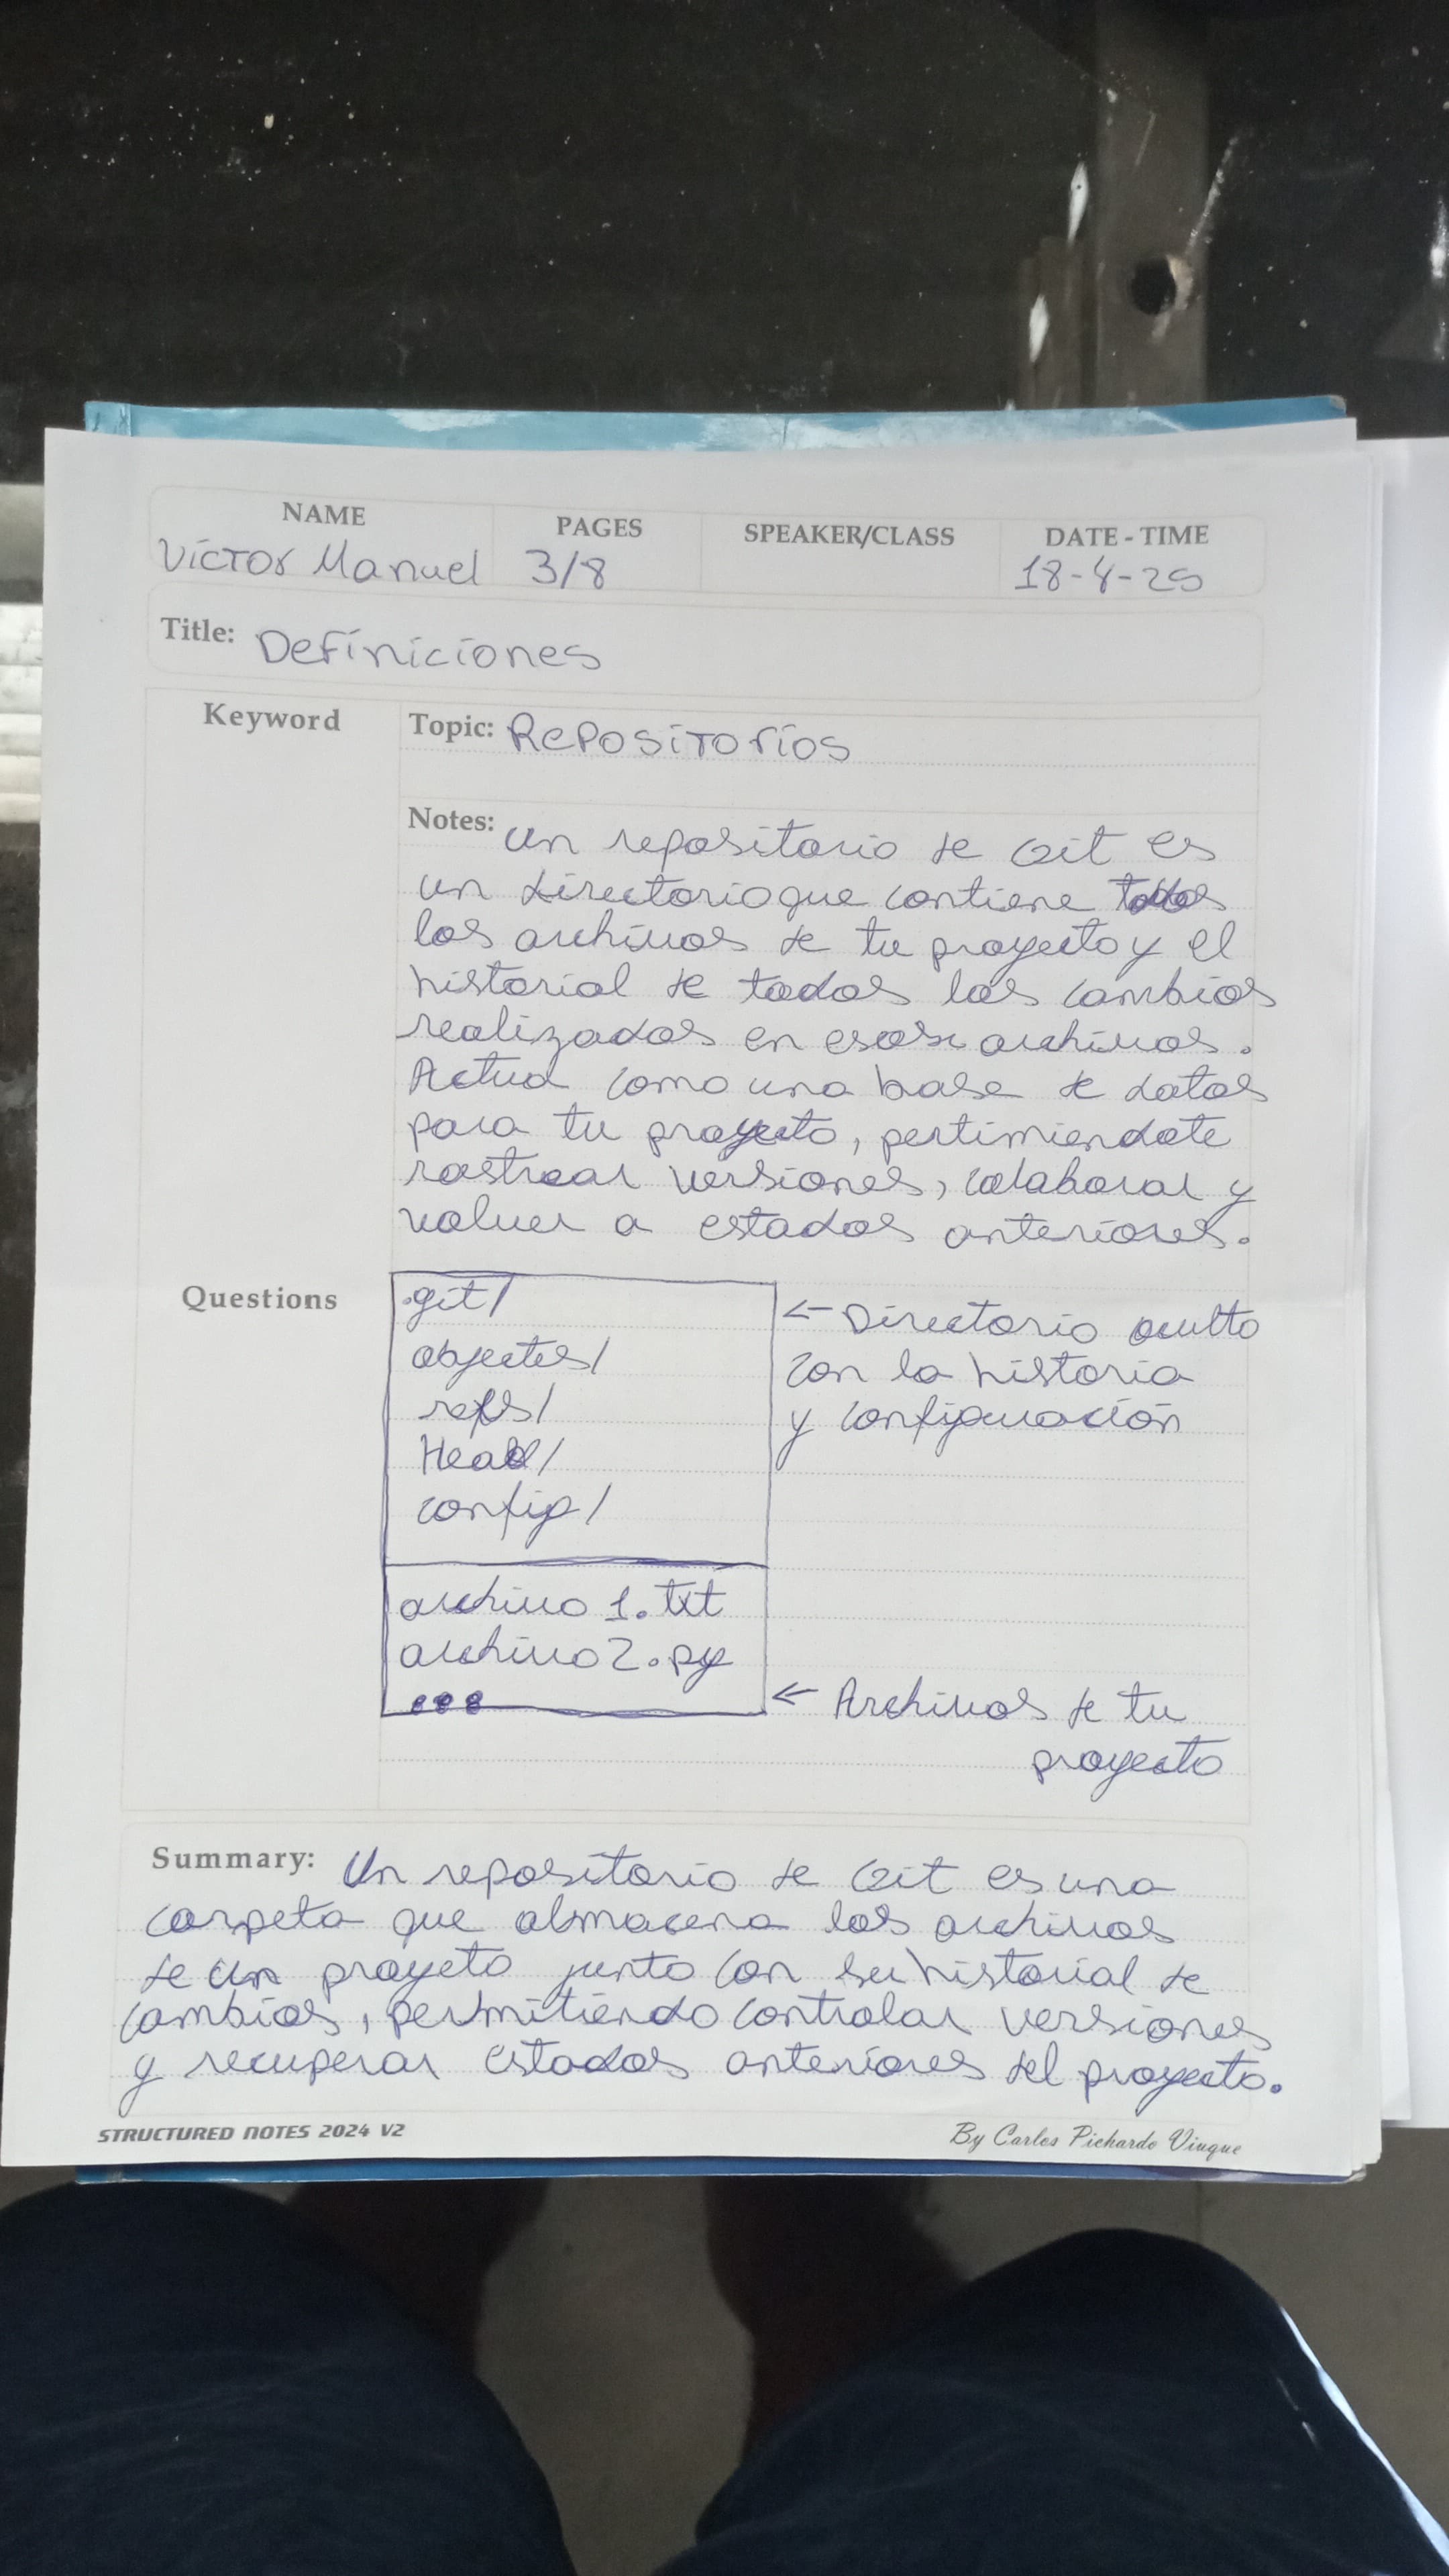 NAME PAGES SPEAKER/CLASS DATE - TIME
Víctor Manuel 3/8 18-4-25
Title: Definiciones
Keyword Topic: Repositorios
Notes: Un repositorio de Git es
un directorio que contiene todos
los archivos de tu proyecto y el
historial de todos los cambios
realizados en esos archivos.
Actua como una base de datos
para tu proyecto, pertimiendote
rastrear versiones, colaborar y
volver a estados anteriores.
Questions .git/ ← Directorio oculto
objectes/ con la historia
refs/ y configuración
Head/
config/
archivo 1.txt
archivo 2.py
... ← Archivos de tu
proyecto
Summary: Un repositorio de Git es una
carpeta que almacena los archivos
de un proyeto junto con su historial de
cambios, permitiendo controlar versiones
y recuperar estados anteriores del proyecto.
STRUCTURED NOTES 2024 V2 By Carlos Pichardo Viuque